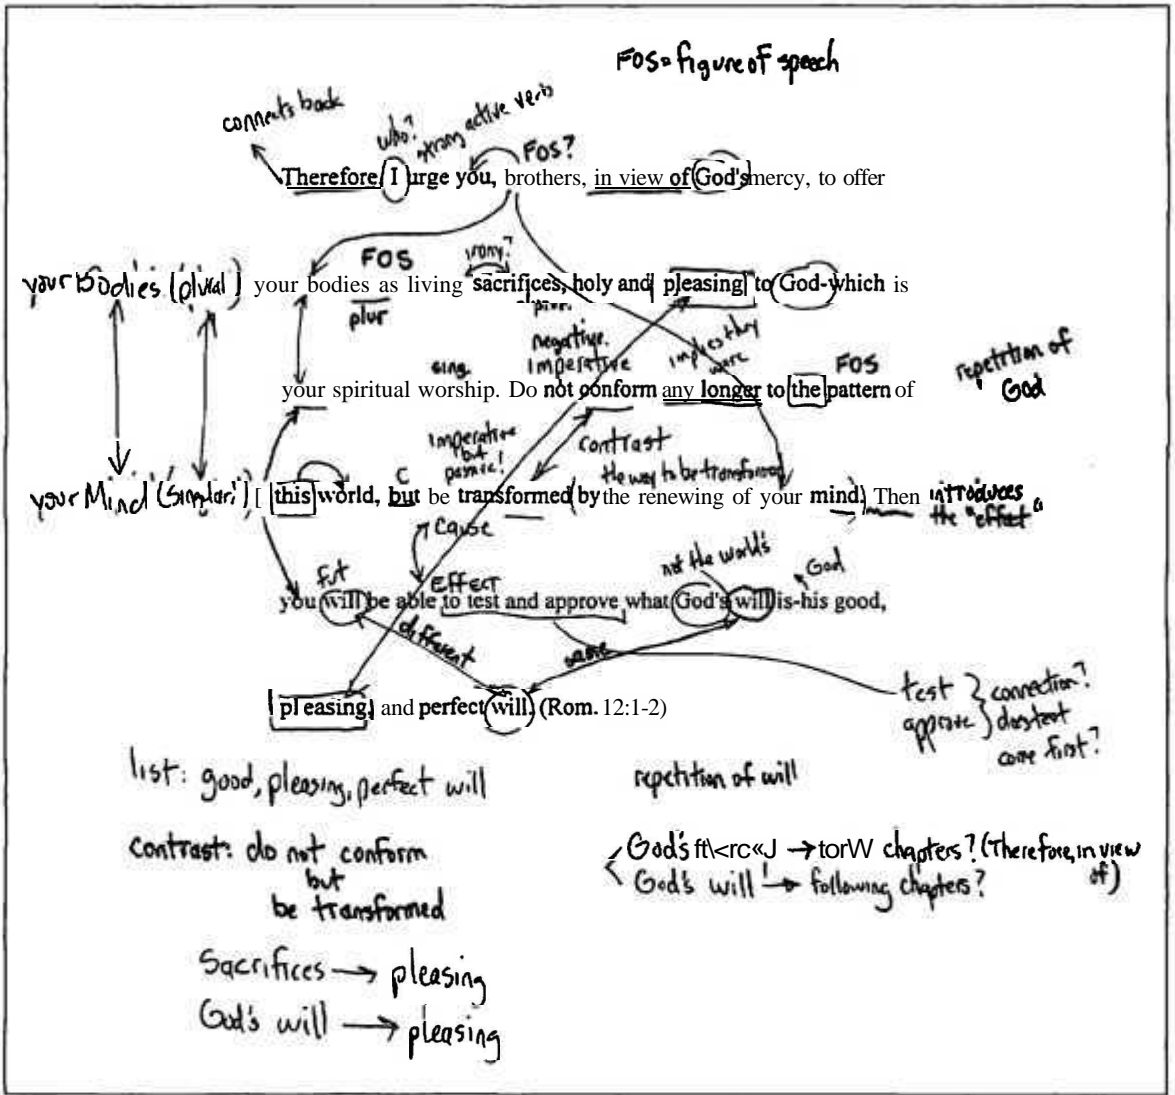 FOS = figure of speech
connects back
who?
strong active verb
FOS?
Therefore, I urge you, brothers, in view of God's mercy, to offer
FOS
irony?
your Bodies (plural) your bodies as living sacrifices, holy and pleasing to God-which is
plur
plur.
negative.
imperative
implies they
were
sing.
FOS
repetition of
God
your spiritual worship. Do not conform any longer to the pattern of
imperative
but
passive!
contrast
the way to be transformed
C
your Mind (singular) [ this world, but be transformed by the renewing of your mind. Then introduces
the "effect"
Cause
fut
EFFECT
not the world's
God
you will be able to test and approve what God's will is-his good,
different
same
pleasing, and perfect will. (Rom. 12:1-2)
test } connection?
approve } does test
come first?
list: good, pleasing, perfect will
repetition of will
contrast: do not conform
but
be transformed
God's ft\<rc«J → torW chapters? (Therefore, in view
of)
God's will → following chapters?
Sacrifices → pleasing
God's will → pleasing